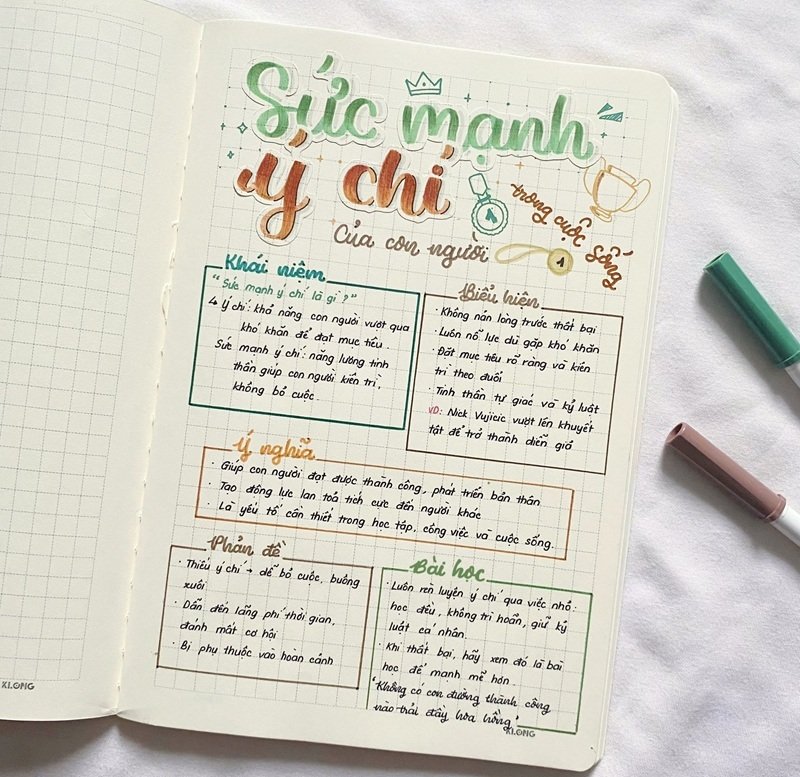 Sức mạnh
ý chí
Của con người
trong cuộc sống
Khái niệm
"Sức mạnh ý chí là gì?"
↳ Ý chí: khả năng con người vượt qua
khó khăn để đạt mục tiêu.
Sức mạnh ý chí: năng lượng tinh
thần giúp con người kiên trì,
không bỏ cuộc.
Biểu hiện
· Không nản lòng trước thất bại
· Luôn nỗ lực dù gặp khó khăn
· Đặt mục tiêu rõ ràng và kiên
trì theo đuổi
· Tinh thần tự giác và kỷ luật
VD: Nick Vujicic vượt lên khuyết
tật để trở thành diễn giả
Ý nghĩa
· Giúp con người đạt được thành công, phát triển bản thân
· Tạo động lực lan toả tích cực đến người khác
· Là yếu tố cần thiết trong học tập, công việc và cuộc sống.
Phản đề
· Thiếu ý chí → dễ bỏ cuộc, buông
xuôi
· Dẫn đến lãng phí thời gian,
đánh mất cơ hội
· Bị phụ thuộc vào hoàn cảnh
Bài học
· Luôn rèn luyện ý chí qua việc nhỏ:
học đều, không trì hoãn, giữ kỷ
luật cá nhân.
· Khi thất bại, hãy xem đó là bài
học để mạnh mẽ hơn.
"Không có con đường thành công
nào trải đầy hoa hồng"
KLONG
KLONG